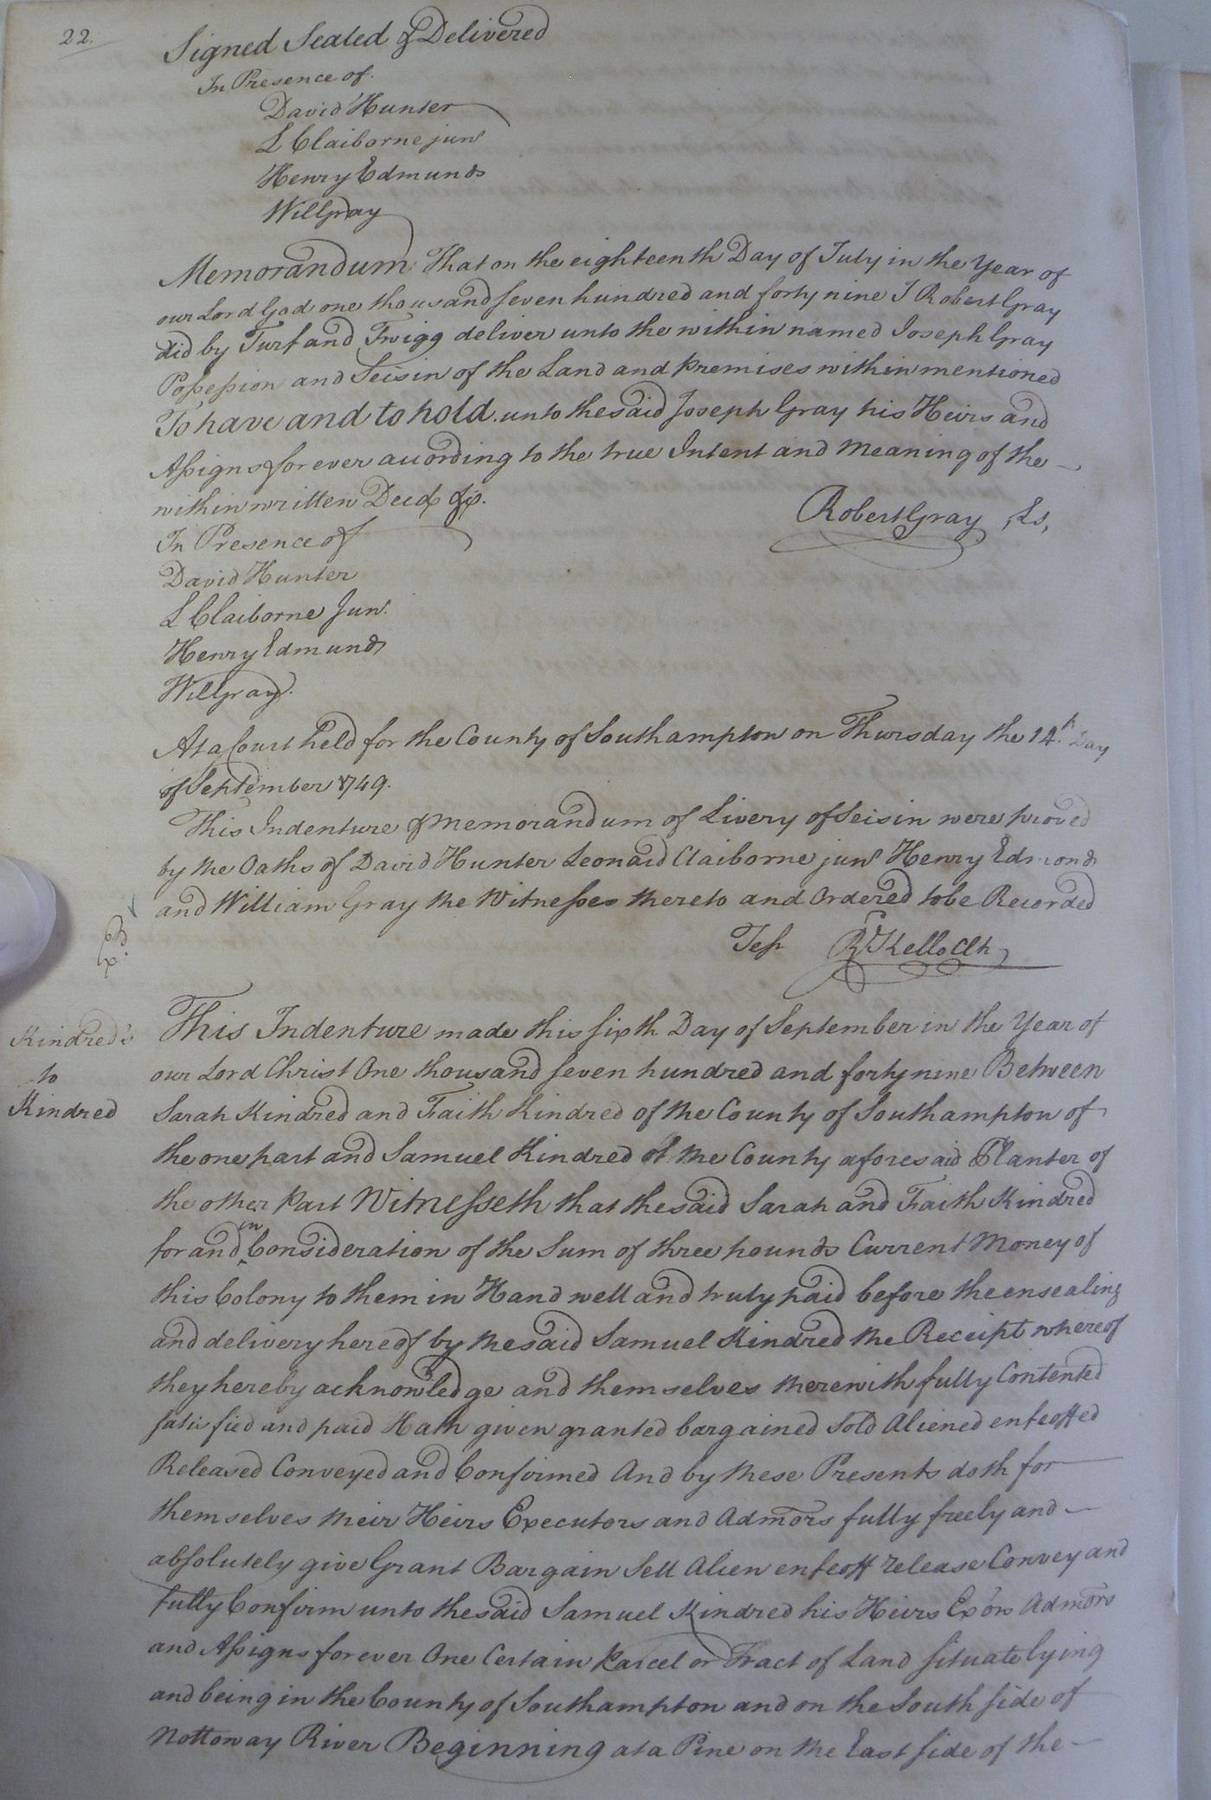 22.
Signed Sealed & Delivered
In Presence of.
David Hunter
L Claiborne junr
Henry Edmunds
Will Gray
Memorandum That on the eighteenth Day of July in the Year of
our Lord God one thousand seven hundred and forty nine I Robert Gray
did by Turf and Twigg deliver unto the within named Joseph Gray
Possession and Seisin of the Land and Premises within mentioned
To have and to hold unto the said Joseph Gray his Heirs and
Assigns for ever according to the true Intent and Meaning of the
within written Deed &c.
Robert Gray, Ls,
In Presence of
David Hunter
L Claiborne Junr.
Henry Edmunds
Will Gray.
At a Court held for the County of Southampton on Thursday the 14th Day
of September 1749.
This Indenture & Memorandum of Livery of Seisin were proved
by the Oaths of David Hunter Leonard Claiborne junr Henry Edmonds
and William Gray the Witnesses thereto and Ordered to be Recorded
Test R Kello Clk
Kindred's
to
Kindred
This Indenture made this sixth Day of September in the Year of
our Lord Christ One thousand seven hundred and forty nine Between
Sarah Kindred and Faith Kindred of the County of Southampton of
the one part and Samuel Kindred of the County aforesaid Planter of
the other Part Witnesseth that the said Sarah and Faith Kindred
for and in Consideration of the Sum of three pounds Current Money of
this Colony to them in Hand well and truly paid before the ensealing
and delivery hereof by the said Samuel Kindred the Receipt whereof
they hereby acknowledge and themselves therewith fully Contented
satisfied and paid Hath given granted bargained Sold Aliened enfeoffed
Released Conveyed and Confirmed And by these Presents doth for
themselves their Heirs Executors and Admors fully freely and
absolutely give Grant Bargain Sell Alien enfeoff release Convey and
fully Confirm unto the said Samuel Kindred his Heirs Exors Admors
and Assigns forever One Certain Parcel or Tract of Land situate lying
and being in the County of Southampton and on the South side of
Nottoway River Beginning at a Pine on the East side of the